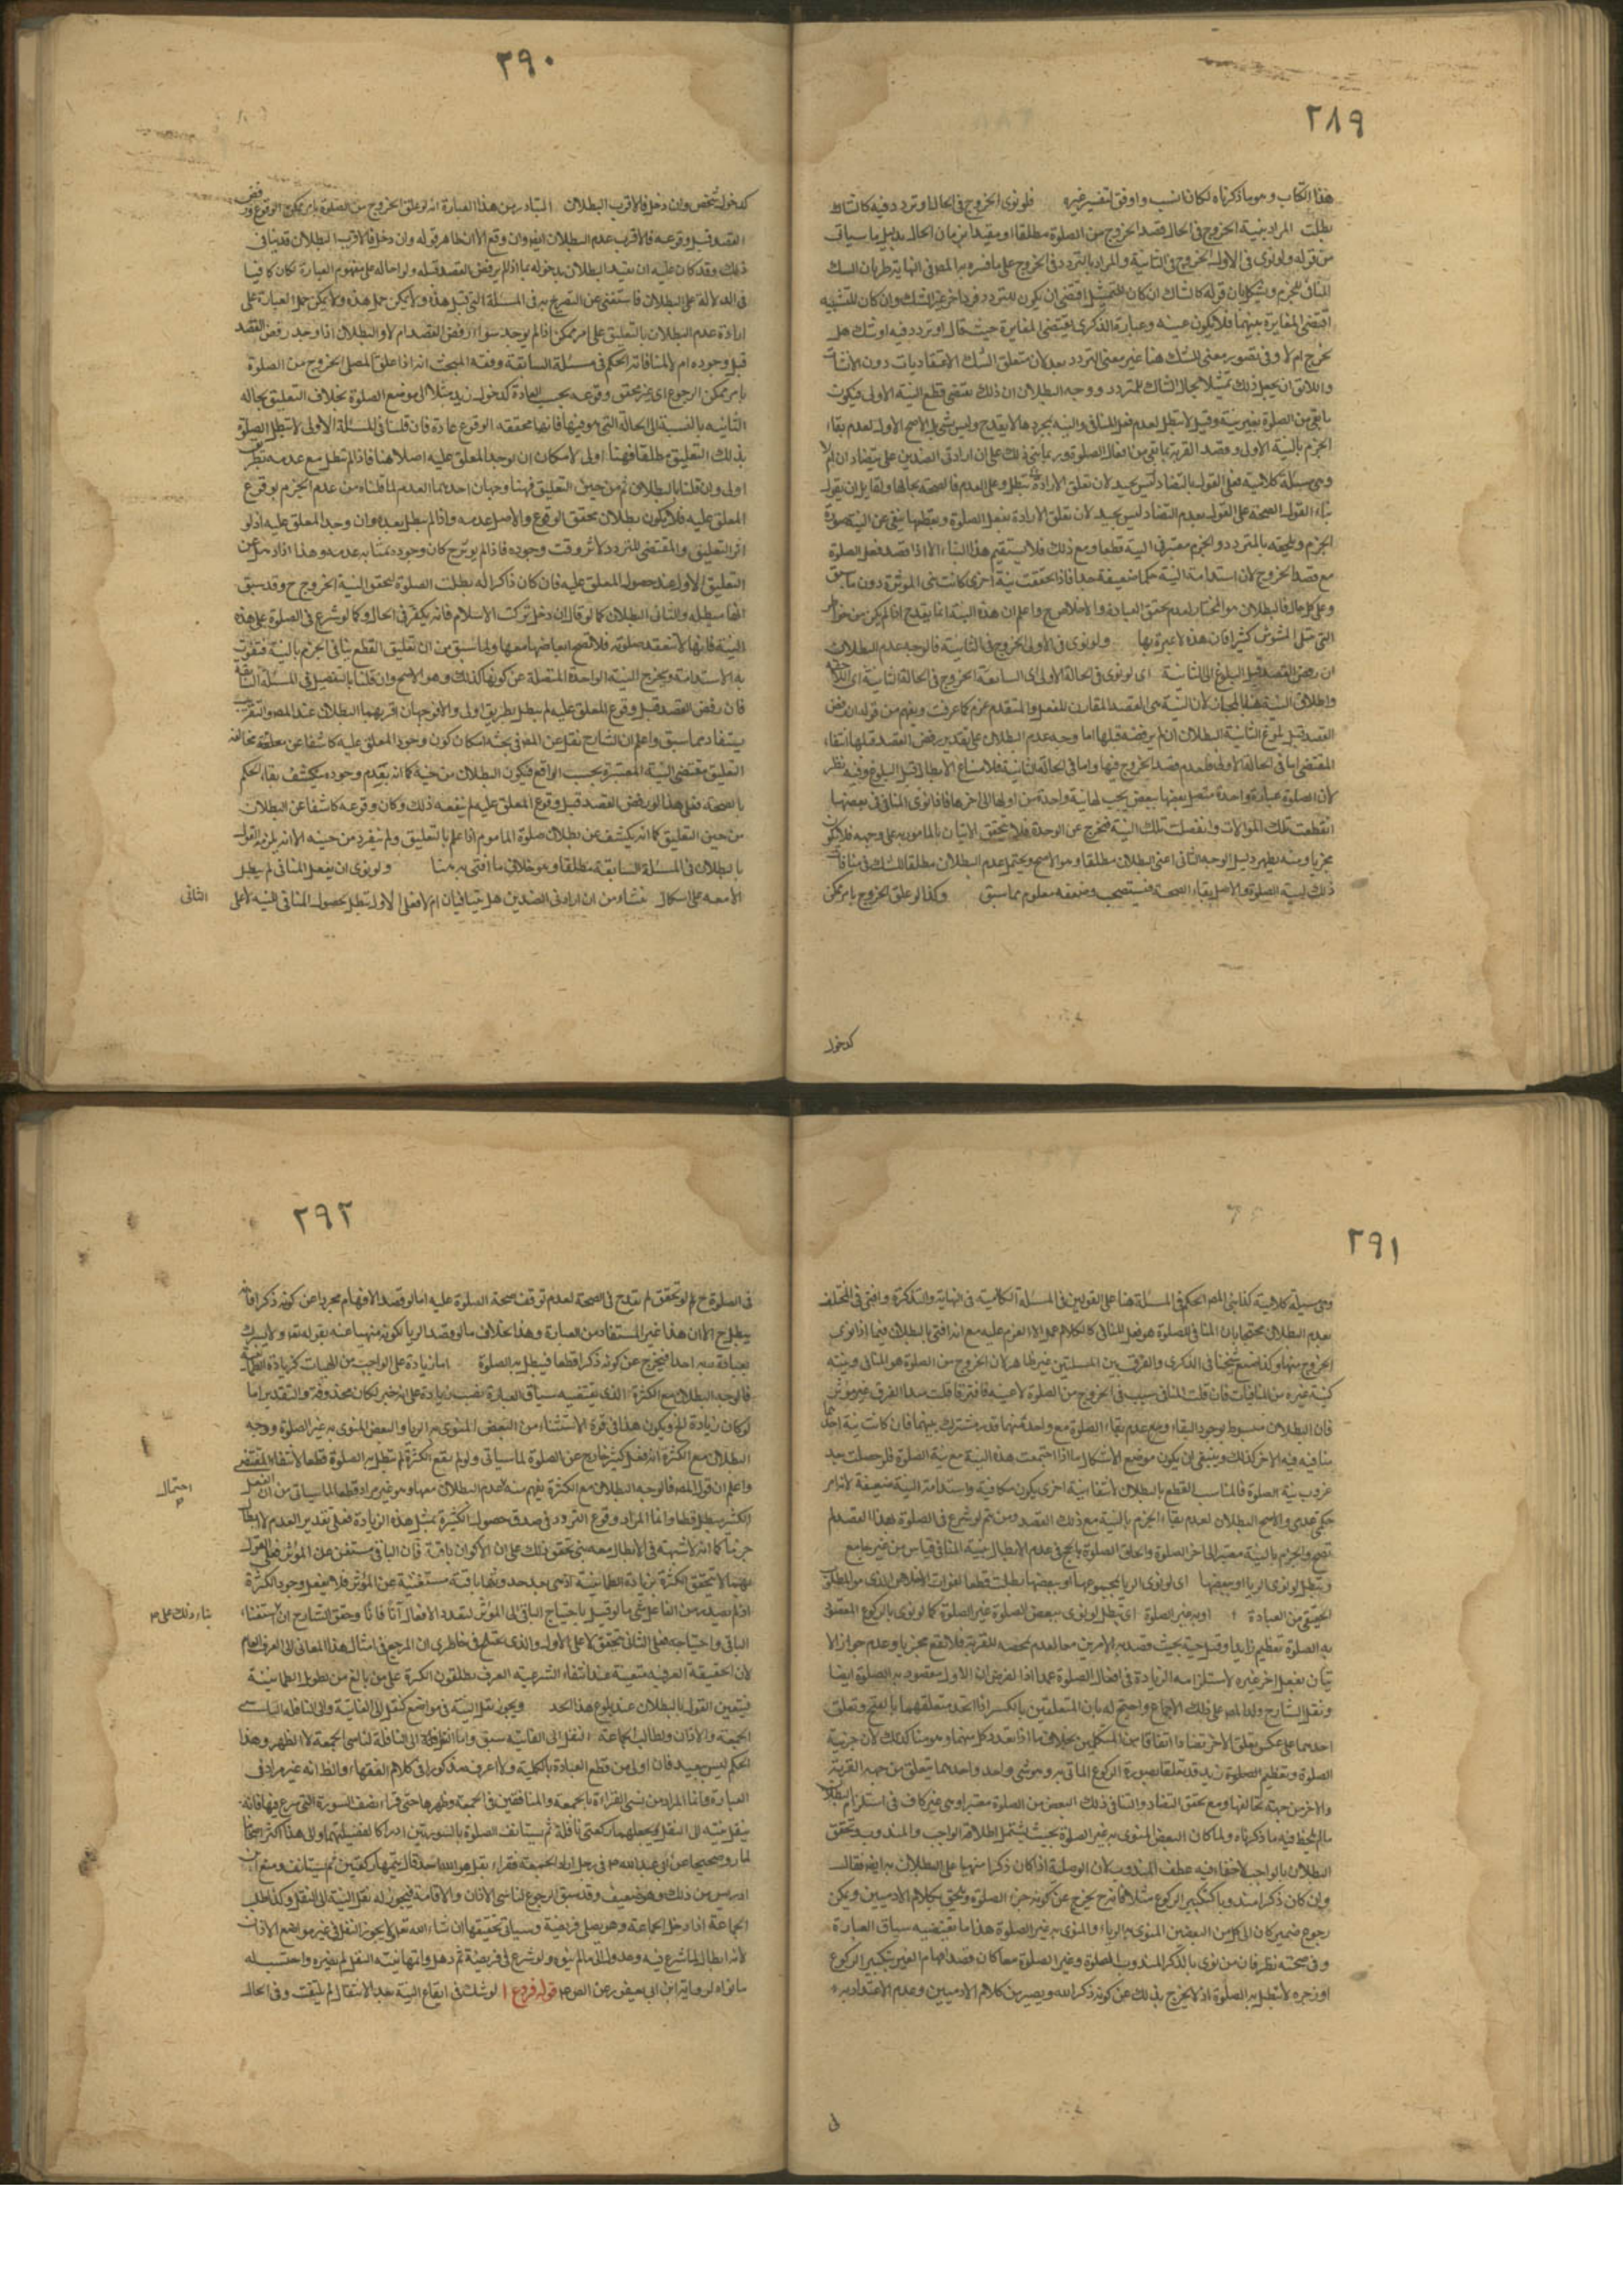 ٢٨٩
هذا الكتاب وهو ما ذكرناه لكان انسب واوفق لتفسير غيره فلو نوى الخروج في الحال او تردد فيه كالشاك
بطلت المراد بنية الخروج في الحال قصد الخروج من الصلوة مطلقا او مقيدا بزمان الحال بدليل ما سياتى
من قوله ولو نوى في الاولى الخروج في الثانية والمراد بالتردد في الخروج على ما فسره به المص في النهاية طريان الشك
المنافى للجزم ويشكل بان قوله كالشاك ان كان للتمثيل اقتضى ان يكون للتردد فرد اخر غير الشك وان كان للتشبيه
اقتضى المغايرة بينهما فلا يكون عينه وعبارة الذكرى تقتضى المغايرة حيث قال او تردد فيه او شك هل
يخرج ام لا وفى تصوير معنى للشك هنا غير معنى التردد بعد لان متعلق الشك الاعتقاديات دون الانشاآت
واللائق ان يجعل ذلك تمثيلا لحال الشاك للمتردد ووجه البطلان ان ذلك يقتضى قطع النية الاولى فيكون
ما بقى من الصلوة بغير نية وقيل لا تبطل لعدم فعل المنافى والنية بمجردها لا يقدح وليس بشئ بل الاصح الاول لعدم بقاء
الجزم بالنية الاولى وقصد القربة بما بقى من افعال الصلوة وربما بنى ذلك على ان ارادتى الضدين هل يتضادان ام لا
وهى مسئلة كلامية فعلى القول بالتضاد
بناء القول الصحة على القول بعدم التضاد ليس بجيد لان تعلق الارادة بفعل الصلوة وبقطعها ينفى عن النية صورة
الجزم ويلحقه بالمتردد والجزم معتبر في النية قطعا ومع ذلك فلا يستقيم هذا البناء الا اذا قصد فعل الصلوة
مع قصد الخروج لان استدامة النية حكما ضعيفة جدا فاذا تحققت نية اخرى كانت هى الموثرة دون ما سبق
وعلى كل حال فالبطلان هو المختار لعدم تحقق العبادة والاخلاص ح واعلم ان هذه النية انما يقدح اذا لم يكن من خواطر
التى تبتلى الموسوس كثيرا فان هذه لا عبرة بها ولو نوى في الاولى الخروج في الثانية فالوجه عدم البطلان
ان رفض القصد قبل البلوغ الى الثانية اى لو نوى في الحالة الاولى اى السابقة الخروج في الحالة الثانية اى اللاحقة
واطلاق النية هنا مجاز لان النية هى القصد المقارن للفعل والمتقدم عزم كما عرفت ويفهم من قوله ان رفض
القصد قبل بلوغ الثانية البطلان ان لم يرفضه قبلها اما وجه عدم البطلان على تقدير رفض القصد قبلها انتفاء
المقتضى اما في الحالة الاولى فلعدم قصد الخروج فيها واما في الحالة الثانية فلامتناع الابطال قبل البلوغ وفيه نظر
لان الصلوة عبادة واحدة متصل بعضها ببعض يجب لها نية واحدة من اولها الى اخرها فاذا نوى المنافى في بعضها
انقطعت تلك الموالات وانفصلت تلك النية فيخرج عن الوحدة فلا يتحقق الاتيان بالمامور به على وجهه فلا يكون
مجزيا ومنه يظهر دليل الوجه الثانى اعنى البطلان مطلقا وهو الاصح ويحتمل عدم البطلان مطلقا للشك في منافاة
ذلك لنية الصلوة والاصل بقاء الصحة فيستصحب وضعفه معلوم مما سبق وكذا لو علق الخروج بامر ممكن
كدخول
٢٩٠
كدخول شخص وان دخل فالاقرب البطلان المتبادر من هذا العبارة انه لو علق الخروج من الصلوة بامر ممكن الوقوع ورفض
القصد قبل وقوعه فالاقرب عدم البطلان ايضا وان وقع الا ان ظاهر قوله وان دخل فالاقرب البطلان قد ينافى
ذلك وقد كان عليه ان يقيد البطلان بدخوله بما اذا لم يرفض القصد قبله ولو احاله على مفهوم العبارة لكان كافيا
في الدلالة على البطلان فاستغنى عن التصريح به في المسئلة التى قبل هذه ولا يمكن حمل هذه ولا يمكن حمل العبارة على
ارادة عدم البطلان بالتعليق على امر ممكن اذا لم يوجد سواء رفض القصد ام لا والبطلان اذا وجد رفض القصد
قبل وجوده ام لا لمنافاته الحكم في مسئلة السابقة وفقه المبحث انه اذا علق المصلى الخروج من الصلوة
بامر ممكن الرجوع اى غير محقق وقوعه بحسب العادة كدخول زيد مثلا الى موضع الصلوة بخلاف التعليق بحاله
الثانيه بالنسبة الى الحالة التى هو فيها فانها محققه الوقوع عادة فان قلنا في المسئلة الاولى لا تبطل الصلوة
بذلك التعليق مطلقا فهنا اولى لامكان ان لا يوجد المعلق عليه اصلا هنا فاذا لم تبطل مع عدمه نظر
اولى وان قلنا بالبطلان ثم من حين التعليق فهنا وجهان احدهما العدم لما قلناه من عدم الجزم بوقوع
المعلق عليه فلا يكون بطلان محقق الوقوع والاصل عدمه واذا لم تبطل بعده وان وجد المعلق عليه اذ لو
اثر التعليق والمقتضى للتردد لاثر وقت وجوده فاذا لم يوثر ح كان وجوده بمثابه عدمه وهذا اذا ذهل عن
التعليق الاول عند حصول المعلق عليه فان كان ذاكرا له بطلت الصلوة لتحقق النية الخروج ح وقد سبق
انها مبطله والثانى البطلان كما لو قال ان دخل تركت الاسلام فانه يكفر في الحال وكما لو شرع في الصلوة على هذه
النية فانها لا تنعقد صلوته فلا تصح ابعاضها معها ولما سبق من ان تعليق القطع ينافى الجزم بالنية فتفوت
به الاستدامة ويخرج النية الواحدة المتصلة عن كونها كذلك وهو الاصح وان قلنا بالتفصيل في المسئلة السابقة
فان رفض القصد قبل وقوع المعلق عليه لم يبطل بطريق اولى والا فوجهان اقربهما البطلان عند المص والتقريب
يستفاد مما سبق واعلم ان الشارح نقل عن المص في بحثه امكان كون وجود المعلق عليه كاشفا عن
التعليق مقتضى النية المعتبرة بحسب الواقع فيكون البطلان من حينه كما انه بعدم وجوده ينكشف بقاء الحكم
بالصحة فعلى هذا لو رفض القصد قبل وقوع المعلق عليه لم ينفعه ذلك وكان وقوعه كاشفا عن البطلان
من حين التعليق كما انه يكشف عن بطلان صلوة الماموم اذا علم بالتعليق ولم ينفرد من حينه الا انه يلزمه القول
بالبطلان في المسئلة السابقة مطلقا وهو خلاف ما افتى به هنا ولو نوى ان يفعل المنافى لم يبطل
الا معه على اشكال ينشاء من ان ارادتى الضدين هل يتنافيان ام لا فعلى الاول تبطل بحصول المنافى للنية لا على الثانى
٢٩١
وهى مسئلة كلامية كذا بنى المص الحكم في المسئلة هنا على القولين في المسئلة الكلامية في النهاية والتذكرة وافتى في المختلف
بعدم البطلان محتجا بان المنافى للصلوة هو فعل المنافى كالكلام عمدا لا العزم عليه مع انه افتى بالبطلان فيما اذا نوى
الخروج منها وكذا صنع شيخنا في الذكرى والفرق بين المسئلتين غير ظاهر لان الخروج من الصلوة هو المنافى ونيته
كنية غيره من المنافيات فان قلت المنافى سبب في الخروج من الصلوة لا عينه فافترقا قلت هذا الفرق غير موثر
فان البطلان منوط بوجود البقاء ومع عدم بقاء الصلوة مع واحد منهما قدر مشترك بينهما فان كانت نية احدهما
منافيه فنيه الاخر كذلك وينبغى ان يكون موضع الاشكال ما اذا اجتمعت هذه النية مع نية الصلوة فلو حصلت بعد
عزوب نية الصلوة فالمناسب القطع بالبطلان لانتفاء نية اخرى يكون مكافية واستدامة النية ضعيفة لانه امر
حكمى عدمى والاصح البطلان لعدم بقاء الجزم بالنية مع ذلك القصد ومن ثم لو شرع في الصلوة بهذا القصد لم
تصح والجزم بالنية معتبر الى اخر الصلوة والحاق الصلوة بالحج في عدم الابطال بنية المنافى قياس من غير جامع
وتبطل لو نوى الرياء او ببعضها اى لو نوى الريا بمجموعها او ببعضها بطلت قطعا لفوات الاخلاص الذى هو المطلوب
الحقيقى من العبادة او به غير الصلوة اى تبطل لو نوى ببعض الصلوة غير الصلوة كما لو نوى بالركوع المعتنى
به الصلوة تعظيم زيد
بان يفعل اخر غيره لاستلزامه الزيادة في افعال الصلوة عمدا اذا لفرض ان الاول مقصود به الصلوة ايضا
ونقل الشارح ولد المص على ذلك الاجماع واحتج له بان المتعلقين بالكسر اذا اتحد متعلقهما بالفتح وتعلق
احدهما على عكس تعلق الاخر تضادا اتفاقا من المتكلمين بخلاف ما اذا تعدد كل منهما وهو هنا كذلك لان جزئية
الصلوة وتعظيم الصلوة زيد قد تعلقا بصورة الركوع الماتى به وهو شئ واحد واحدهما يتعلق من جهة القربة
والاخر من جهة تخالفها ومع تحقق التضاد والتنافى ذلك البعض من الصلوة معتبر اوهى غير كاف في استلزام البطلان
ما لم يلحظ فيه ما ذكرناه ولما كان البعض المنوى به غير الصلوة بحيث يشتمل اطلاقه الواجب والمندوب وتحقق
البطلان بالواجب لاخفاء فيه عطف المندوب بان الوصلية اذا كان ذكرا منبها على البطلان به ايضا فقال
وان كان ذكرا مندوبا كتكبير الركوع مثلا فانه ح يخرج عن كونه جزء الصلوة ويلحق بكلام الادميين ويمكن
رجوع ضمير كان الى كل من البعضين المنوى به الرياء والمنوى به غير الصلوة هذا ما يقتضيه سياق العبارة
وفى صحته نظر فان من نوى بالذكر المندوب الصلوة وغير الصلوة معا كان قصد افهام الغير بتكبير الركوع
او زجره لا تبطل به الصلوة اذ لا يخرج بذلك عن كونه ذكر الله ويصير من كلام الادميين وعدم الاعتداد به
فى
٢٩٢
في الصلوة ح لو تحقق لم يقدح في الصحة لعدم توقف صحة الصلوة عليه اما لو قصد الافهام مجردا عن كونه ذكرا فانه
يبطل ح الا ان هذا غير المستفاد من العبارة وهذا بخلاف ما لو قصد الريا لكونه منهيا عنه بقوله تعه ولا يشرك
بعبادة ربه احدا فيخرج عن كونه ذكرا قطعا فيبطل به الصلوة اما زيادة على الواجب من الهيئات كزيادة الطمانينة
فالوجه البطلان مع الكثرة الذى يقتضيه سياق العبارة نصب زيادة على انه خبر لكان محذوفة والتقدير اما
لو كان زيادة الخ ويكون هذا في قوة الاستثناء من البعض المنوى به الريا والبعض المنوى به غير الصلوة ووجه
البطلان مع الكثرة انه فعل كثير خارج عن الصلوة لما سياتى ولو لم يقع الكثرة لم تبطل به الصلوة قطعا لانتفاء المقتضى
واعلم ان قول المص فالوجه البطلان مع الكثرة يفهم منه احتمال عدم البطلان معها وهو غير مراد قطعا لما سياتى من ان الفعل
الكثير يبطل قطعا وانما المراد وقوع التردد في صدق حصول الكثيرة بمثل هذه الزيادة فعلى تقدير العدم لا ابطال
جزما كما انه لا شبهة في الابطال معه بنى تحقق ذلك على ان الاكوان باقية فان الباقى مستغن عن الموثر فعلى القول
بهما لا يتحقق الكثرة بزيادة الطمانينة اذ هى بعد حدوثها باقية مستغنية عن الموثر فلا يفعل وجود الكثرة
اذ لم يصدر من الفاعل شئ ما لو قيل باحتياج الباقى الى الموثر لتعدد الافعال آنا فآنا وحقق الشارح ان استغناء
الباقى واحتياجه فعلى الثانى تتحقق لا على الاول والذى يختلج في خاطرى ان المرجع في امثال هذا المعانى الى العرف العام
لان الحقيقة العرفيه متعينة عند انتفاء الشرعيه العرف يطلقون الكثرة على من بالغ من تطويل الطمانينة
فيتعين القول بالبطلان عند بلوغ هذا الحد ويجوز نقل النية في مواضع كنقل الى الفائتة والى النافله لناسى
الجمعة والاذان ولطالب الجماعة النقل الى الفائتة سبق واما النقل الى النافلة لناسى الجمعة لا الظهر وهذا
الحكم ليس ببعيد فان اولى من قطع العبادة بالكلية ولا اعرف مذكورا في كلام الفقهاء والظ انه غير مراد في
العبارة وانما المراد من نسى القراءة بالجمعة والمنافقين في الجمعة وظهرها حتى قراء نصف السورة التى شرع فيها فانه
ينقل نيته الى النفل ويجعلهما ركعتى نافلة ثم يستانف الصلوة بالسورتين ادراكا لفضيلتهما والى هذا اكثر الاصحاب
لما روى صحيحا عن ابى عبد الله ع في رجل اراد الجمعة فقراء بقل هو الله احد قال يتمها ركعتين ثم يستانف ومنع ابن
ادريس من ذلك وهو ضعيف وقد سبق الرجوع لناسى الاذان والاقامة فيجوز له نقل النية الى النفل وكذا طلب
الجماعة اذا دخل الجماعة وهو يصلى فريضة وسياتى تحقيقها ان شاء الله تعالى لا يجوز النقل في غير مواضع الاذن
لانه ابطال لما شرع فيه وعدول الى ما لم ينوه ولو شرع في فريضة ثم ذهل واتمها بنية النفل لم يضره واحتسب له
ما نواه لرواية ابن ابى يعفور عن الص ع قوله فروع ا لو شك في ايقاع النية بعد الانتقال لم يلتفت وفى الحال
احتمال
بناء ذلك على